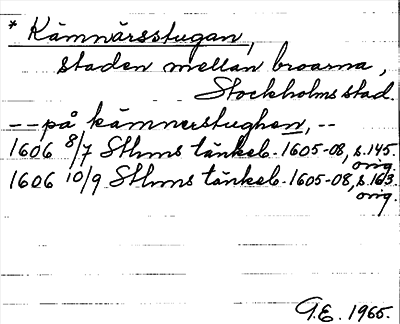 * Kämnärsstugan,
staden mellan broarna,
Stockholms stad.
-- på kämnerstughen, --
1606 8/7 Sthms tänkeb. 1605-08, s. 145.
orig.
1606 10/9 Sthms tänkeb. 1605-08, s. 163.
orig.
G.E. 1965.